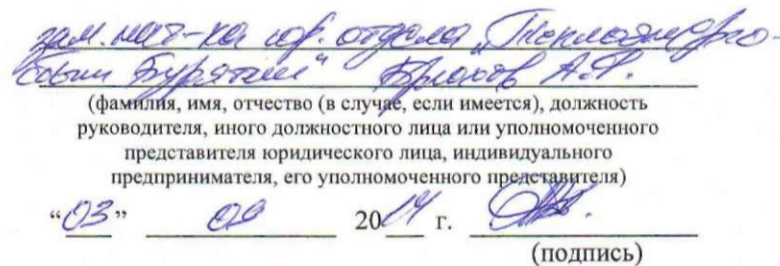 зам. нач-ка юр. отдела "Теплоэнерго-
сбыт Бурятии" Брюхов А.Ф.
(фамилия, имя, отчество (в случае, если имеется), должность
руководителя, иного должностного лица или уполномоченного
представителя юридического лица, индивидуального
предпринимателя, его уполномоченного представителя)
"03" 09 2014 г.
(подпись)